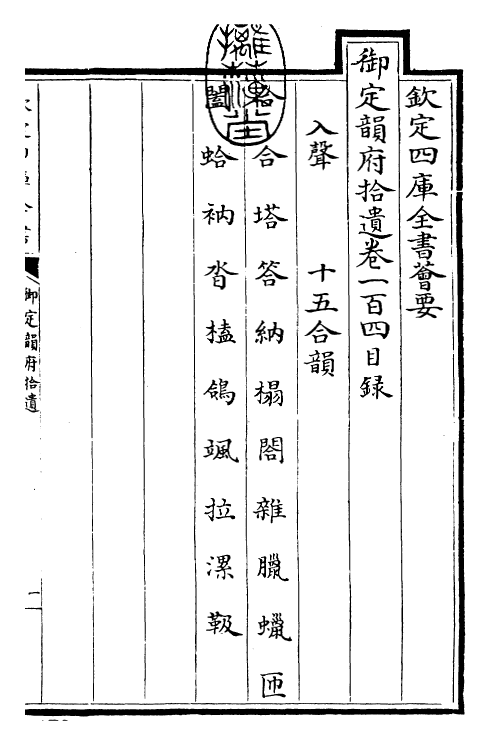 欽定四庫全書薈要
御定韻府拾遺卷一百四目録
入聲　十五合韻
合塔答納榻閤雜臘蠟匝
闔蛤衲沓榼鴿颯拉漯靸
御定韻府拾遺